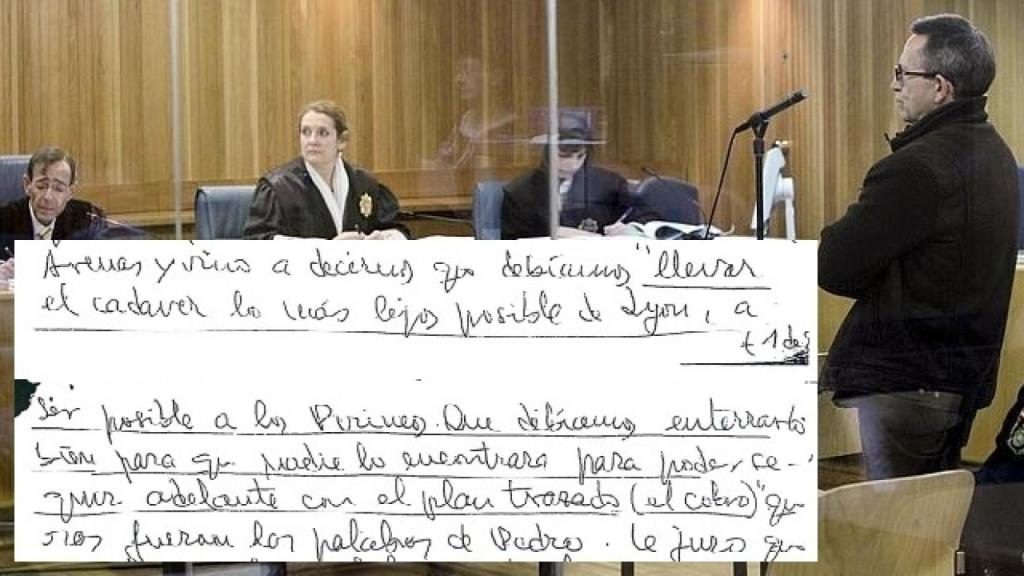 Arenas y vino a decirnos que debíamos "llevar
el cadaver lo más lejos posible de Lyon, a
ser posible a los Pirineos. Que debíamos enterrarlo
bien para que nadie lo encontrara para poder se-
guir adelante con el plan trazado (el cobro)" que
fueron las palabras de Pedro. Le juro que